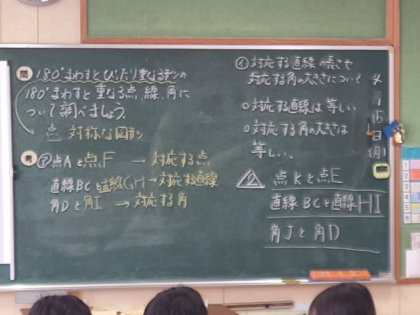 問 180°まわすとぴったり重なる形の
180°まわすと重なる点、線、角に
ついて調べましょう。
点対称な図形
考 ア 点Aと点F → 対応する点
直線BCと直線GH→対応する直線
角Dと角I → 対応する角
イ 対応する直線の長さや
対応する角の大きさについて
○対応する直線は等しい
○対応する角の大きさは
等しい。
2 点Kと点E
直線BCと直線HI
角Jと角D
15
日
(月)